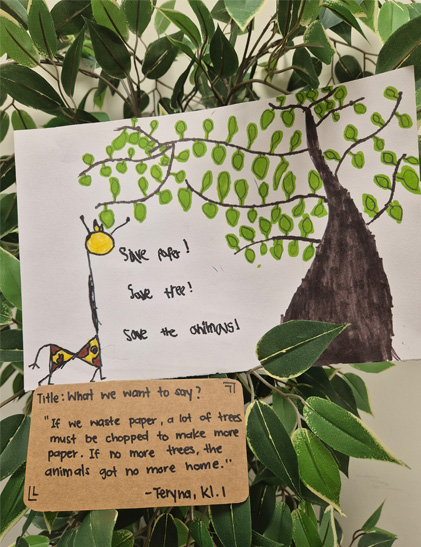 Save paper!
Save tree!
Save the animals!
Title: What we want to say?
"If we waste paper, a lot of trees
must be chopped to make more
paper. If no more trees, the
animals got no more home."
-Teryna, K1.1